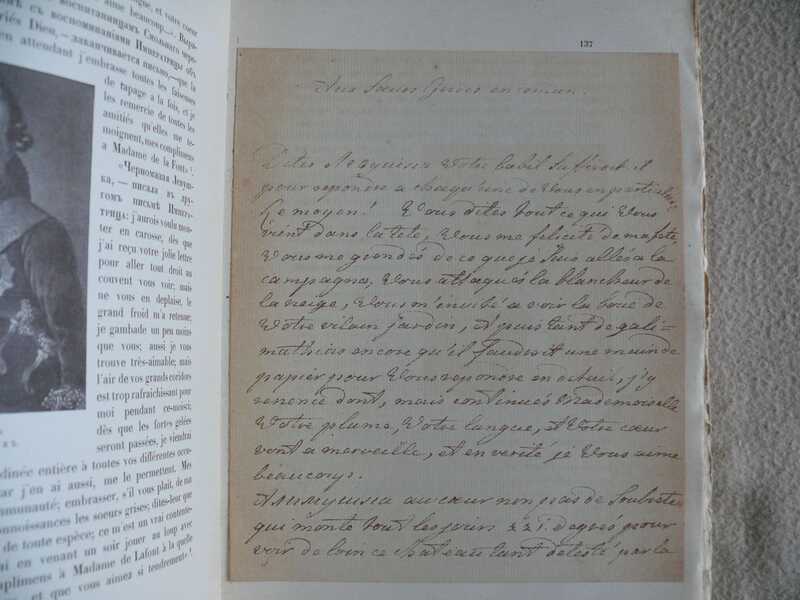 gue, et votre coeur
aime beaucoup...». Выра-
съ воспитанницамъ Смольнаго чере-
съ воспоминаніями Императрицы объ
riés Dieu, — заканчивается письмо,—que la
en attendant j'embrasse toutes les faiseuses
de tapage a la fois, et je
les remercie de toutes les
amitiés qu'elles me té-
moignent, mes complimens
a Madame de la Font»
«Черномазая Левуш-
ка, — писала въ дру-
гомъ письмѣ Импера-
трица: j'aurois voulu mon-
ter en carosse, dès que
j'ai reçu votre jolie lettre
pour aller tout droit au
couvent vous voir; mais
ne vous en deplaise, le
grand froid m'a retenue;
je gambade un peu moins
que vous; aussi je vous
trouve très-aimable; mais
l'air de vos grands coridors
est trop rafraichissant pour
moi pendant ce-mois;
dès que les fortes gelées
seront passées, je viendrai
dinée entière à toutes vos différentes occu-
car j'en ai aussi, me le permettent. Mes
munauté; embrasser, s'il vous plait, de ma
onnoissances les soeurs grises; dites-leur que
de toute espèce; ce m'est un vrai contente-
i en venant un soir jouer au loup avec
mplimens à Madame de Lafont à la quelle
et que vous aimez si tendrement»
137
Aux Soeurs Grises en comun.
votre babil suffiroit il
pour repondre a chaqu'une de Vous en particulier
Le moyen! Vous dites tout ce qui Vous
vient dans la tete, Vous me félicité de ma fete,
Vous me grondés de ce que je suis allés a la
campagna, Vous attaqués la blancheur de
la neige, Vous m'invité a voir la boue de
Votre vilain jardin, et puis tant de gali=
mathias encore qu'il faudroit une main de
papier pour Vous repondre en detail, j'y
renonce dont, mais continues Mademoiselle
Votre plume, Votre langue, et Votre cœur
vont a merveille, et en verité je Vous aime
beaucoup.
Алимушка au cœur non pas de Soubrette
qui monte tout les jours 221 degrés pour
voir de loin ce chateau tant detesté par la